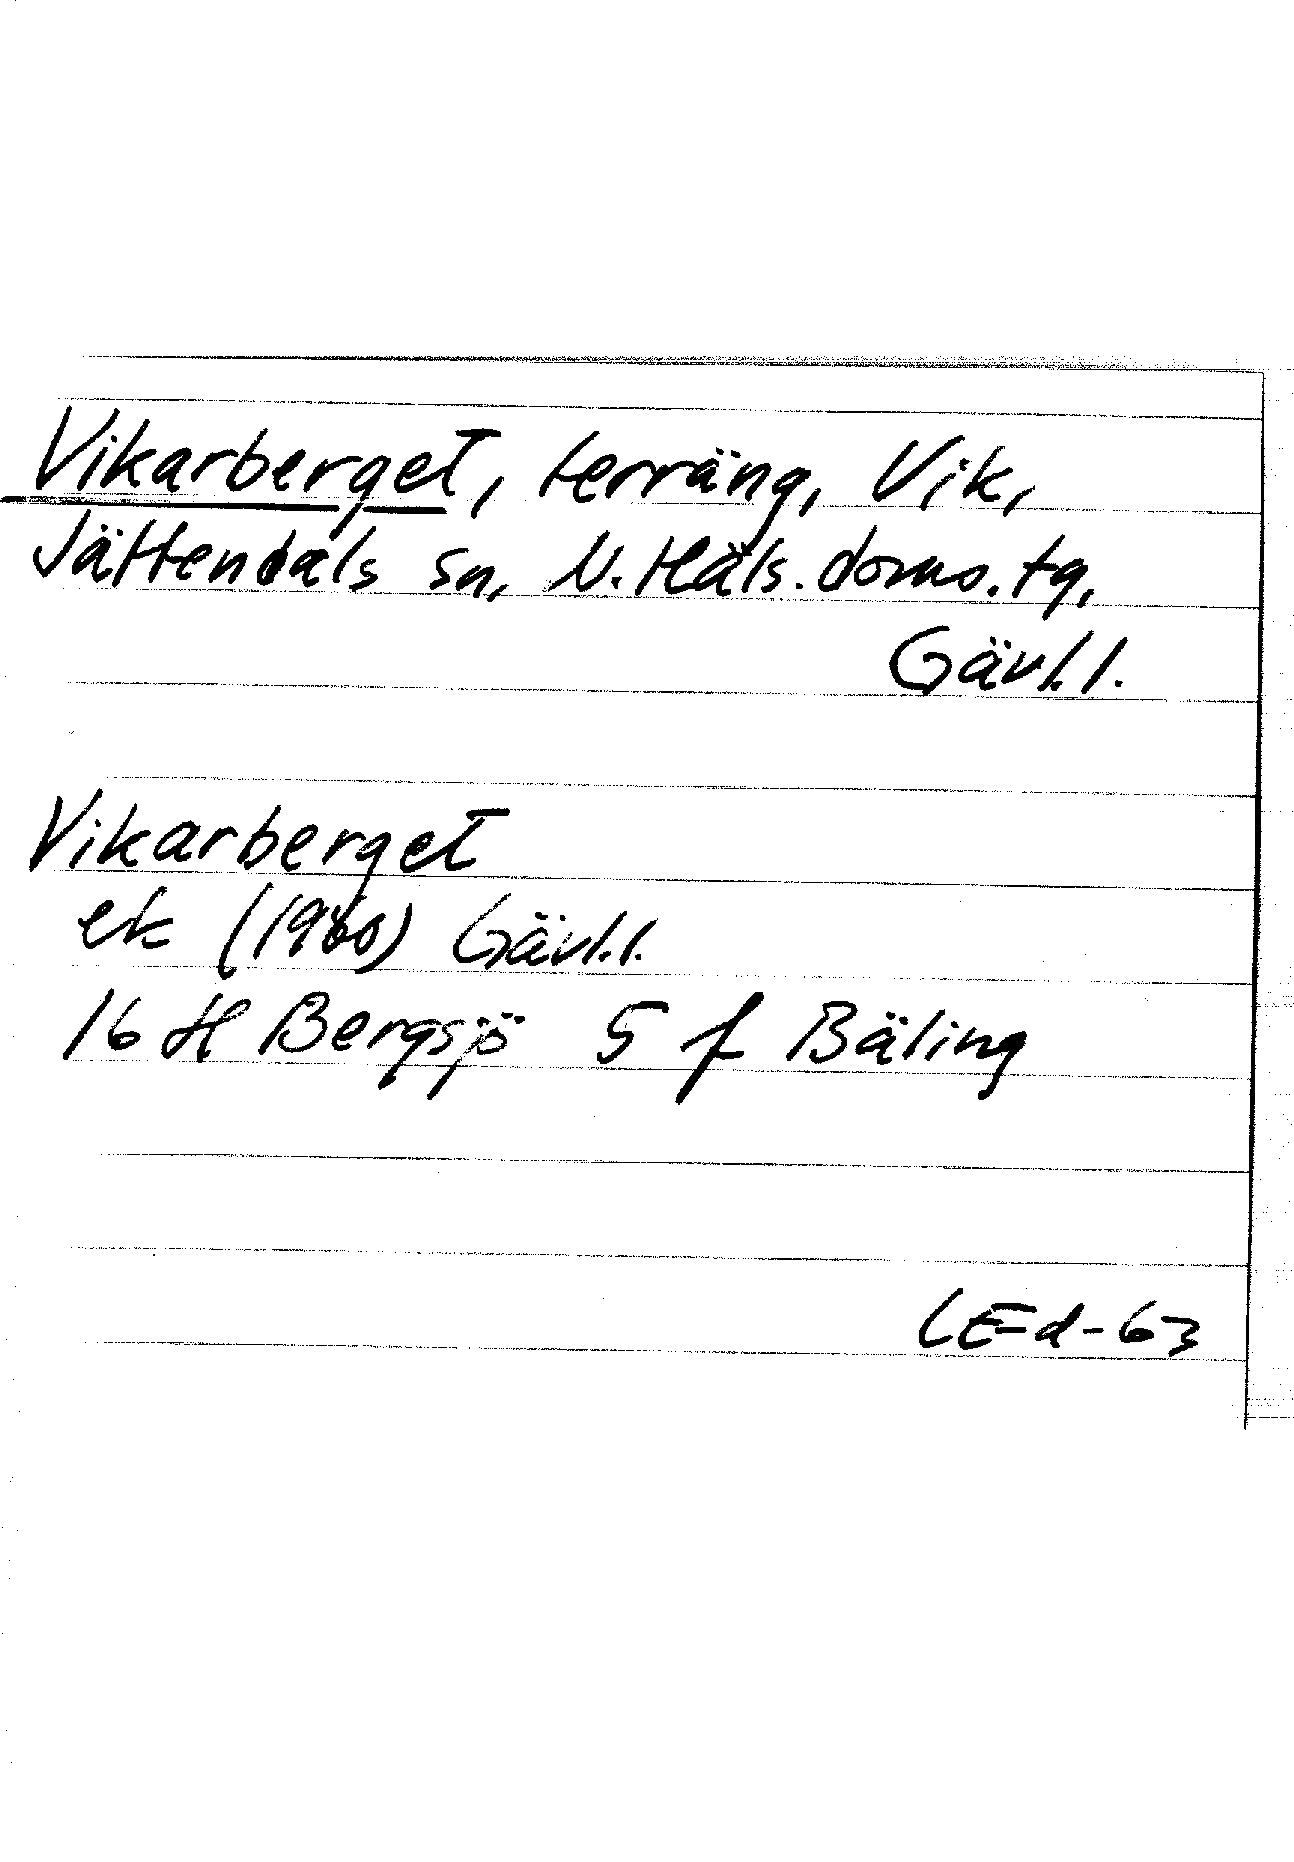 Vikarberget, terräng, Vik,
Jättendals sn, N. Häls. doms. tg,
Gävl.l.
Vikarberget
ek (1960) Gävl.l.
16 H Bergsjö 5 f Bäling
LE-d-63